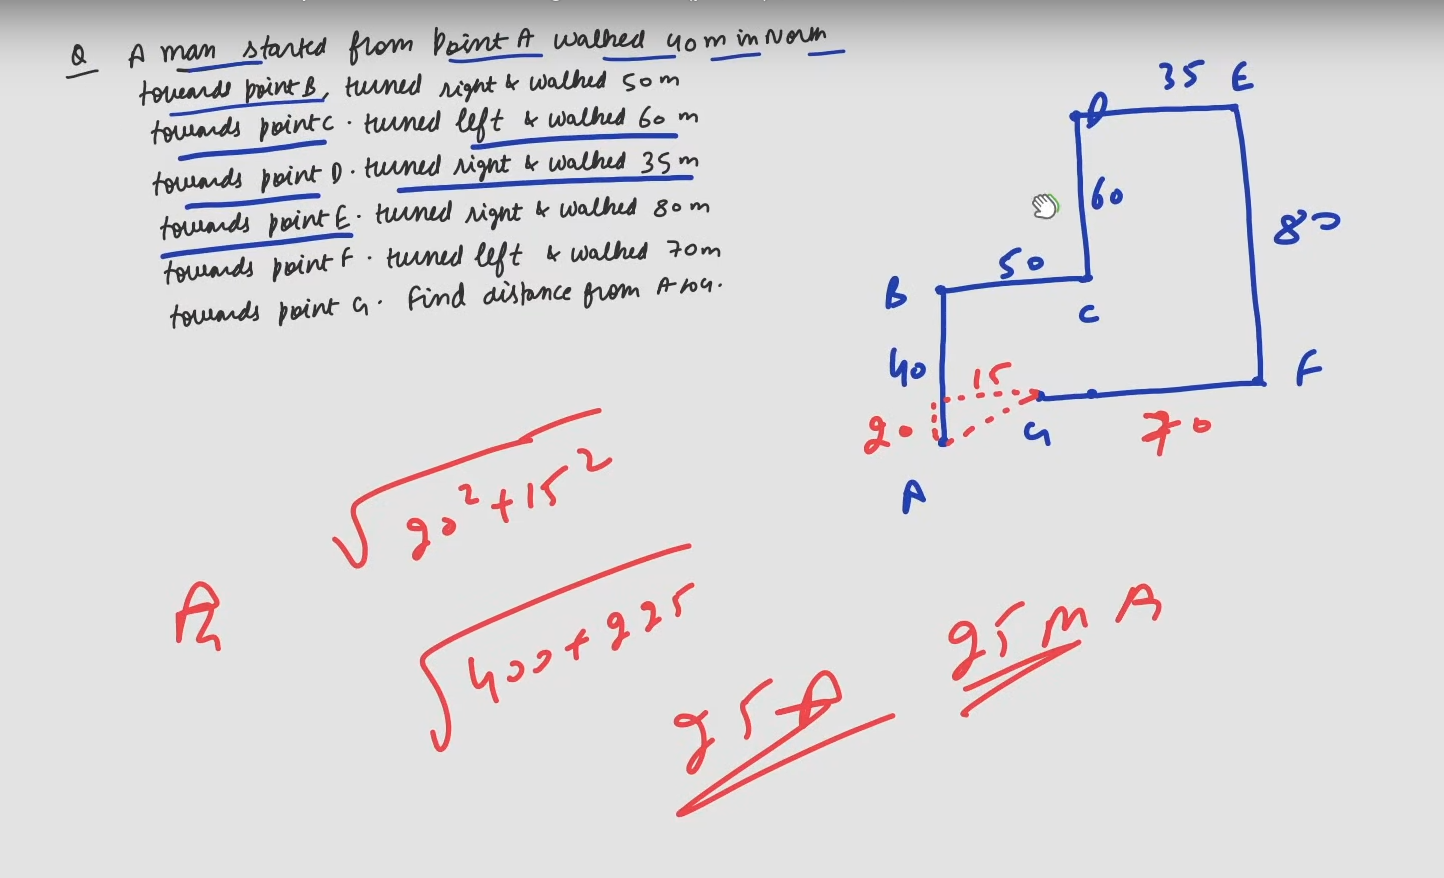 Q A man started from Point A walked 40 m in North
towards point B, turned right & walked 50 m
towards point C . turned left & walked 60 m
towards point D . turned right & walked 35 m
towards point E . turned right & walked 80 m
towards point F . turned left & walked 70 m
towards point G . find distance from A to G .
35 E
D
60
80
50
B
C
40
15
F
20
G
70
A
√20²+15²
√400+225
25 m A
25